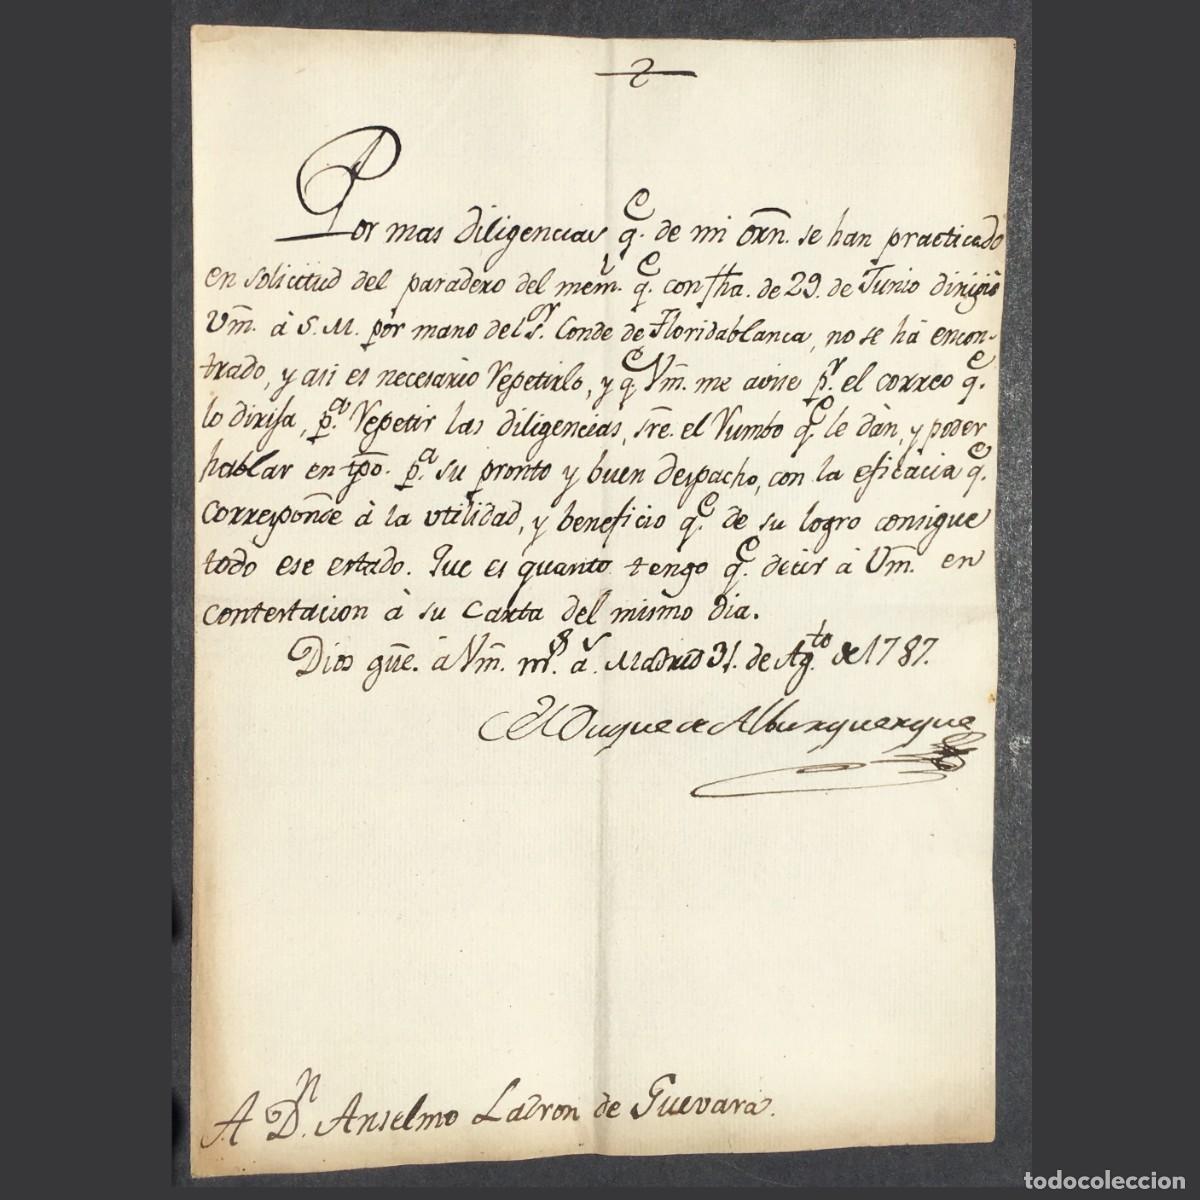 Por mas diligencias q.e de mi orñ. se han practicado
en solicitud del paradero del mem.l q.e con fha. de 29. de Junio dirigió
Vm̃. à S. M. por mano del S.r Conde de Floridablanca, no se há encon-
trado, y asi es necesario repetirlo, y q.e Vm̃. me avise p.r el correo q.e
lo dirija, p.a repetir las diligencias, sr̃e. el rumbo q.e le dàn, y poder
hablar en tp̃o. p.a su pronto y buen despacho, con la eficacia q.e
corresponde à la utilidad, y beneficio q.e de su logro consigue
todo ese estado. Que es quanto tengo q.e decir à Vm̃. en
contestacion à su carta del mismo dia.
Dios güe. à Vm̃. m.s a.s Madrid 31. de Ag.to de 1787.
El Duque de Alburquerque
A D.n Anselmo Ladron de Guevara.
todocoleccion